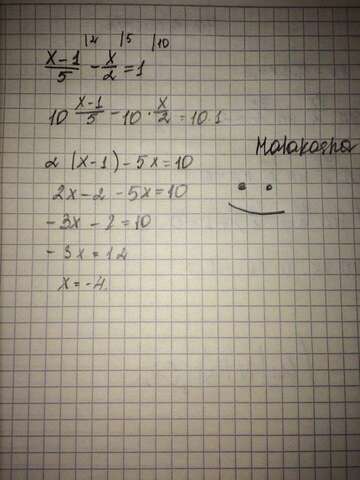 |2 |5 |10
x-1/5 - x/2 = 1
10 x-1/5 - 10 · x/2 = 10 1
2 (x-1) - 5x = 10
2x - 2 - 5x = 10
-3x - 2 = 10
-3x = 12
x = -4.